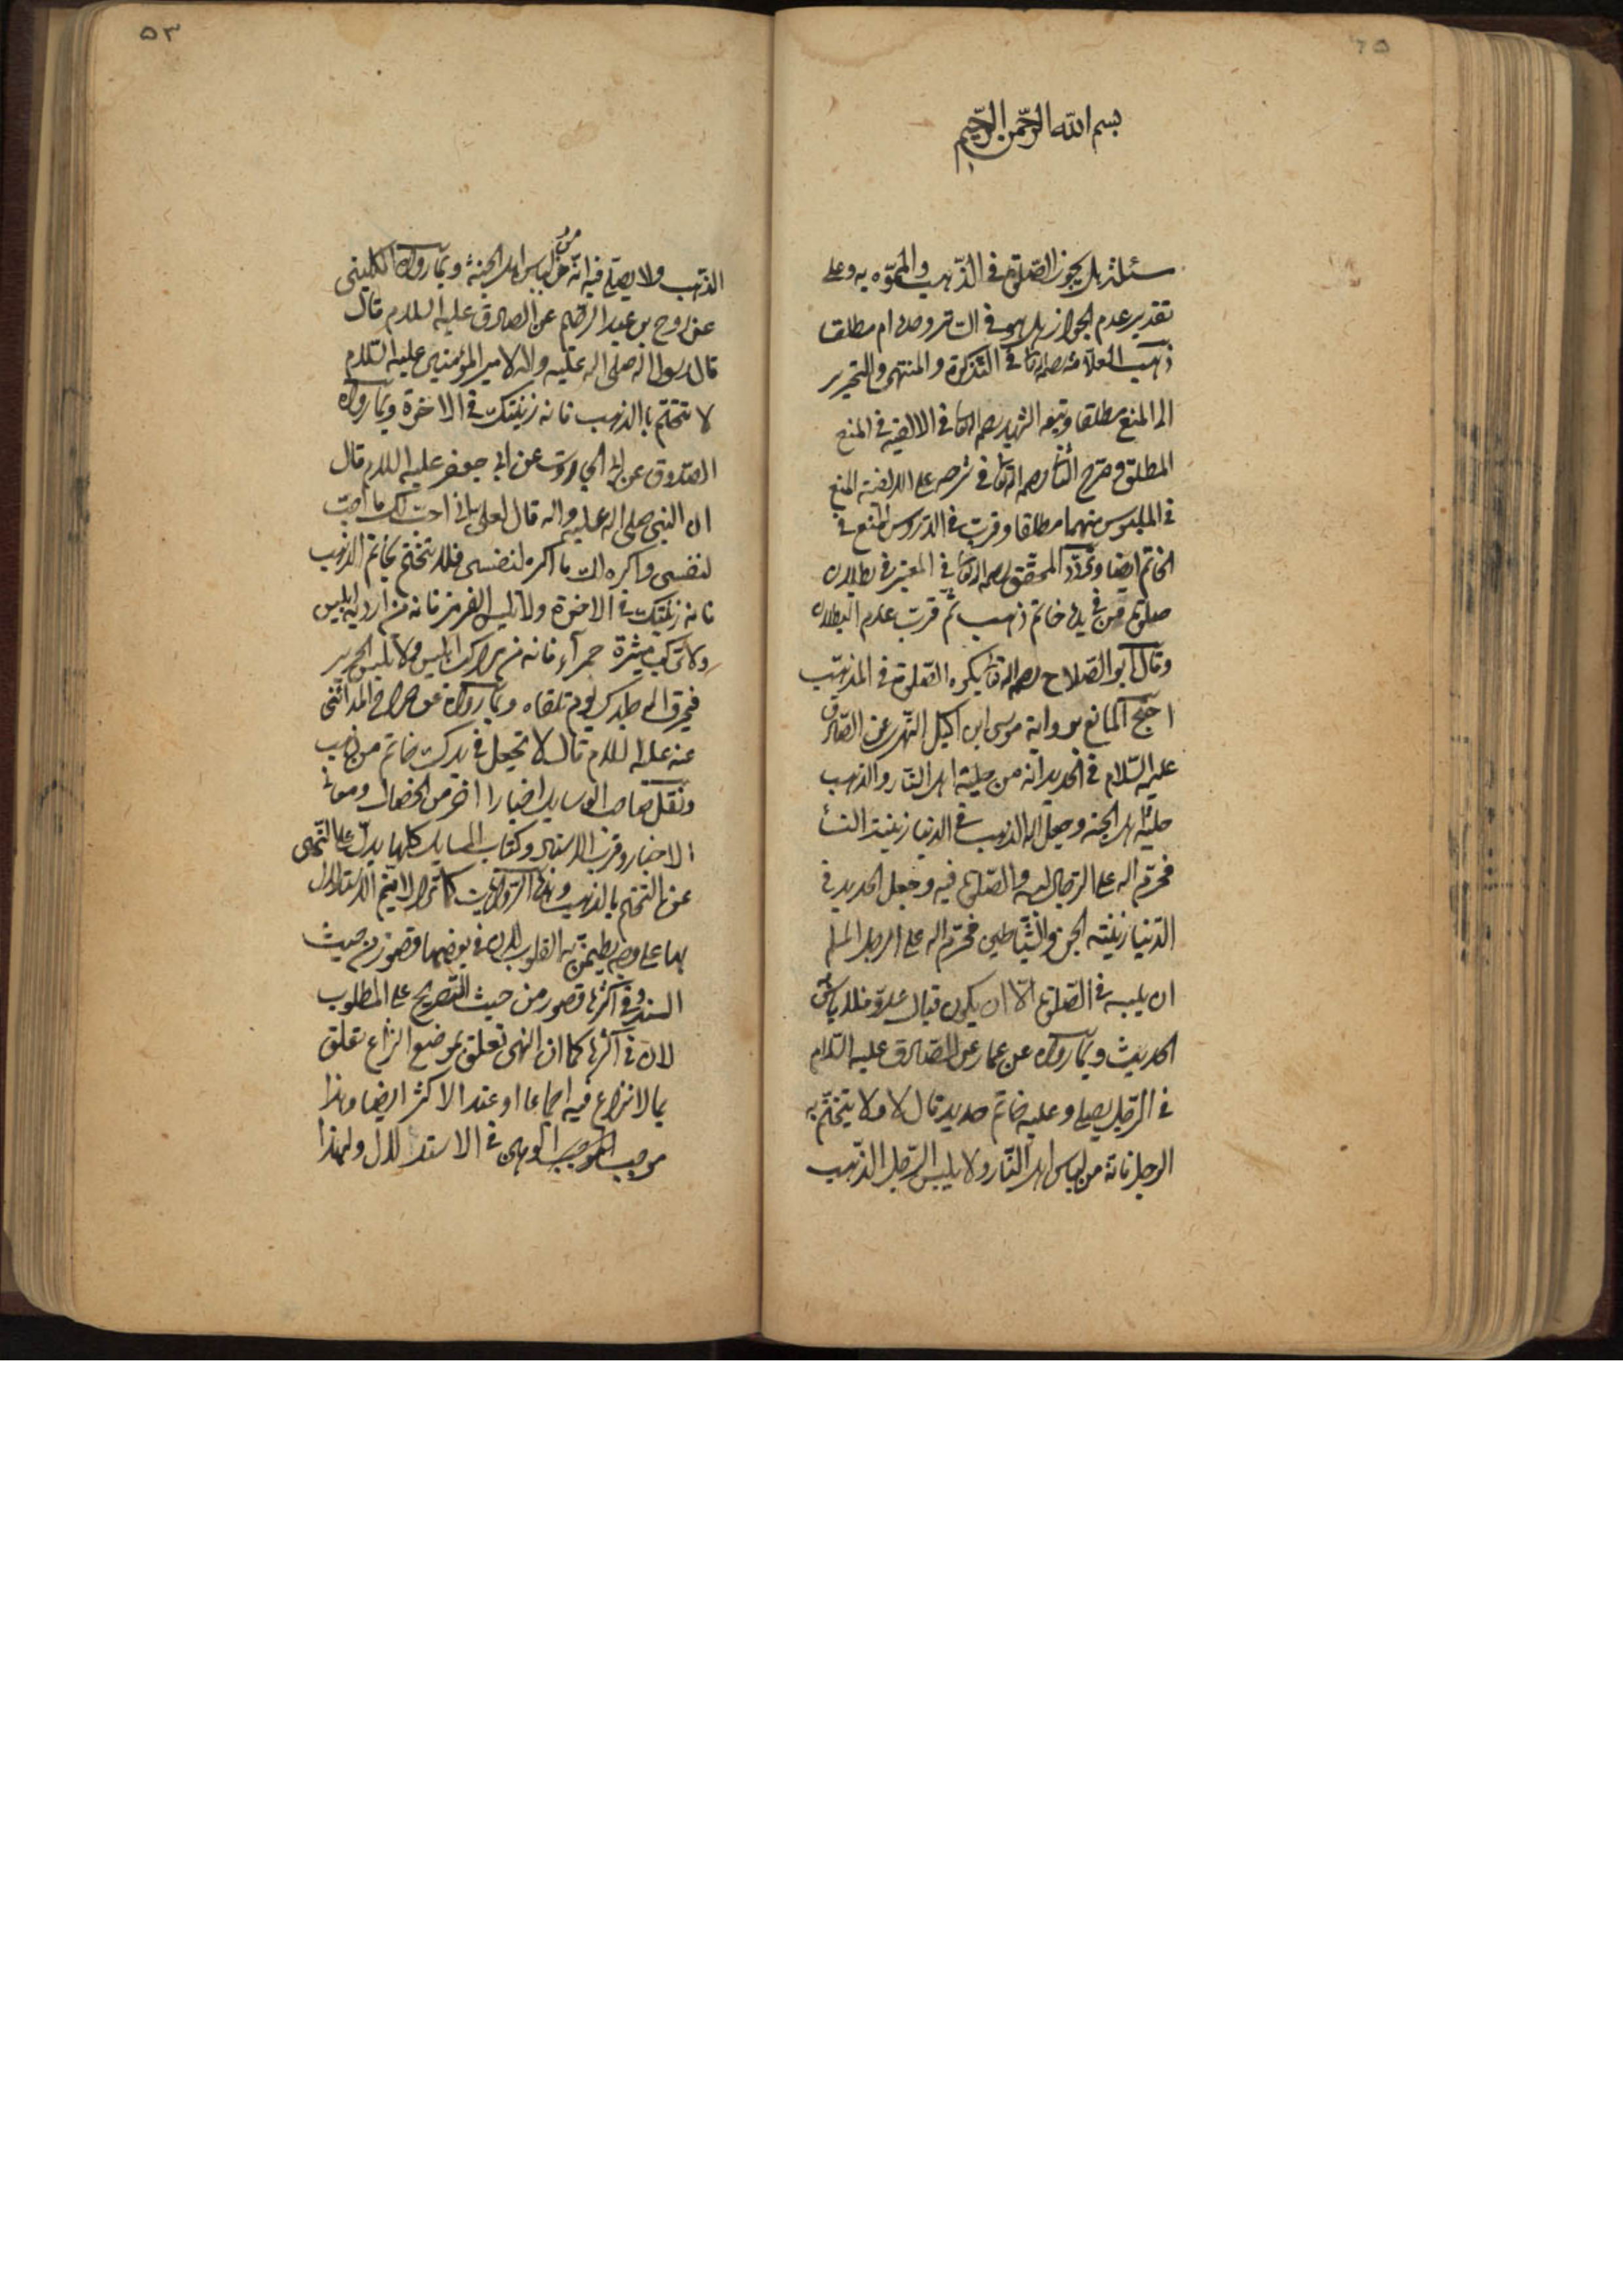 بسم الله الرحمن الرحيم
مسئلة هل يجوز الصلوة في الذهب والمموه به وعلى
تقدير عدم الجواز هل هو في الساتر وحده ام مطلقا
ذهب العلامة رحمه الله تعالى في التذكرة والمنتهى والتحرير
الى المنع مطلقا وتبعه الشهيد رحمه الله تعالى في الالفية في المنع
المطلق وصرح الشارح رحمه الله تعالى في شرحه على الالفية المنع
في الملبوس منهما مطلقا وقرب في الدروس المنع في
الخاتم ايضا وتردد المحقق رحمه الله تعالى في المعتبر في بطلان
صلوة من في يده خاتم ذهب ثم قرب عدم البطلان
وقال ابو الصلاح رحمه الله تعالى يكره الصلوة في المذهب
احتج المانع برواية موسى ابن اكيل النميري عن الصادق
عليه السلام في الحديد انه من حلية اهل النار والذهب
حلية اهل الجنة وجعل الله الذهب في الدنيا زينة النساء
فحرم الله على الرجال لبسه والصلوة فيه وجعل الحديد في
الدنيا زينة الجن والشياطين فحرم الله على الرجل المسلم
ان يلبسه في الصلوة الا ان يكون قبال عدو فلا باس
الحديث وبما رواه عن عمار عن الصادق عليه السلام
في الرجل يصلي وعليه خاتم حديد قال لا ولا يتختم به
الرجل فانه من لباس اهل النار ولا يلبس الرجل الذهب
٥٣
الذهب ولا يصلي فيه انه من لباس اهل الجنة وبما رواه الكليني
عن روح بن عبد الرحيم عن الصادق عليه السلام قال
قال رسول الله صلى الله عليه واله لامير المؤمنين عليه السلام
لا تتختم بالذهب فانه زينتك في الاخرة وبما رواه
الصدوق عن ابي الجارود عن ابي جعفر عليه السلام قال
ان النبي صلى الله عليه واله قال لعلي اني احب لك ما احب
لنفسي واكره لك ما اكره لنفسي فلا تتختم بخاتم الذهب
فانه زينتك في الاخرة ولا تلبس القرمز فانه من اردية ابليس
ولا تركب ميثرة حمراء فانه من مراكب ابليس ولا تلبس الحرير
فيحرق الله جلدك يوم تلقاه وبما رواه عن جراح المدائني
عنه عليه السلام قال لا تجعل في يدك خاتم من ذهب
ونقل صاحب الوسايل اخبارا اخر من الخصال ومعاني
الاخبار وقرب الاسناد وكتاب المسايل كلها يدل على النهي
عن التختم بالذهب وهذه الروايات كما ترى لا يتم الاستدلال
بها على وجه يطمئن به القلوب لان في بعضها قصور من حيث
السند وفي اكثرها قصور من حيث التصريح على المطلوب
لان في اكثرها كما ان النهي تعلق بموضع النزاع تعلق
بما لا نزاع فيه اجماعا او عند الاكثر ايضا وهذا
موجب الوهن في الاستدلال ولهذا